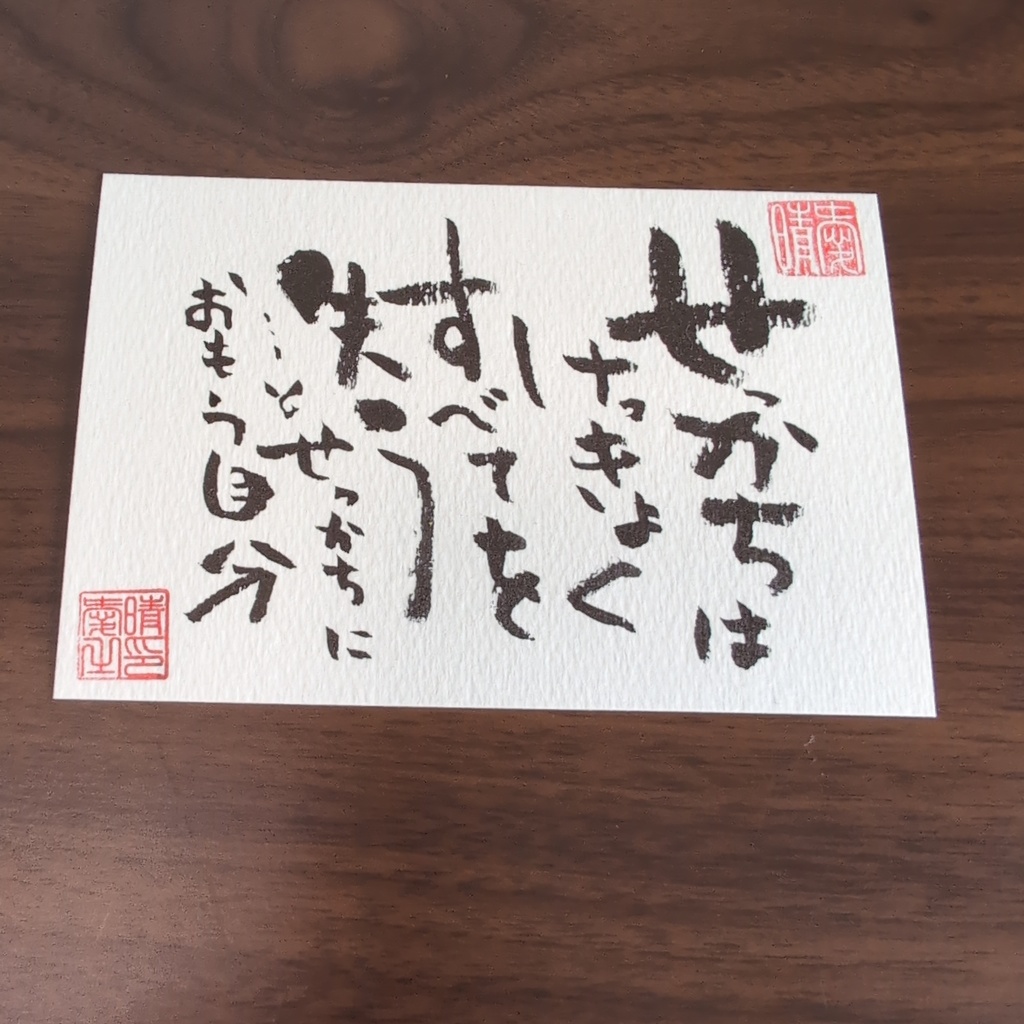 せっかちは
けっきょく
すべてを
失う
…とせっかちに
おもう自分